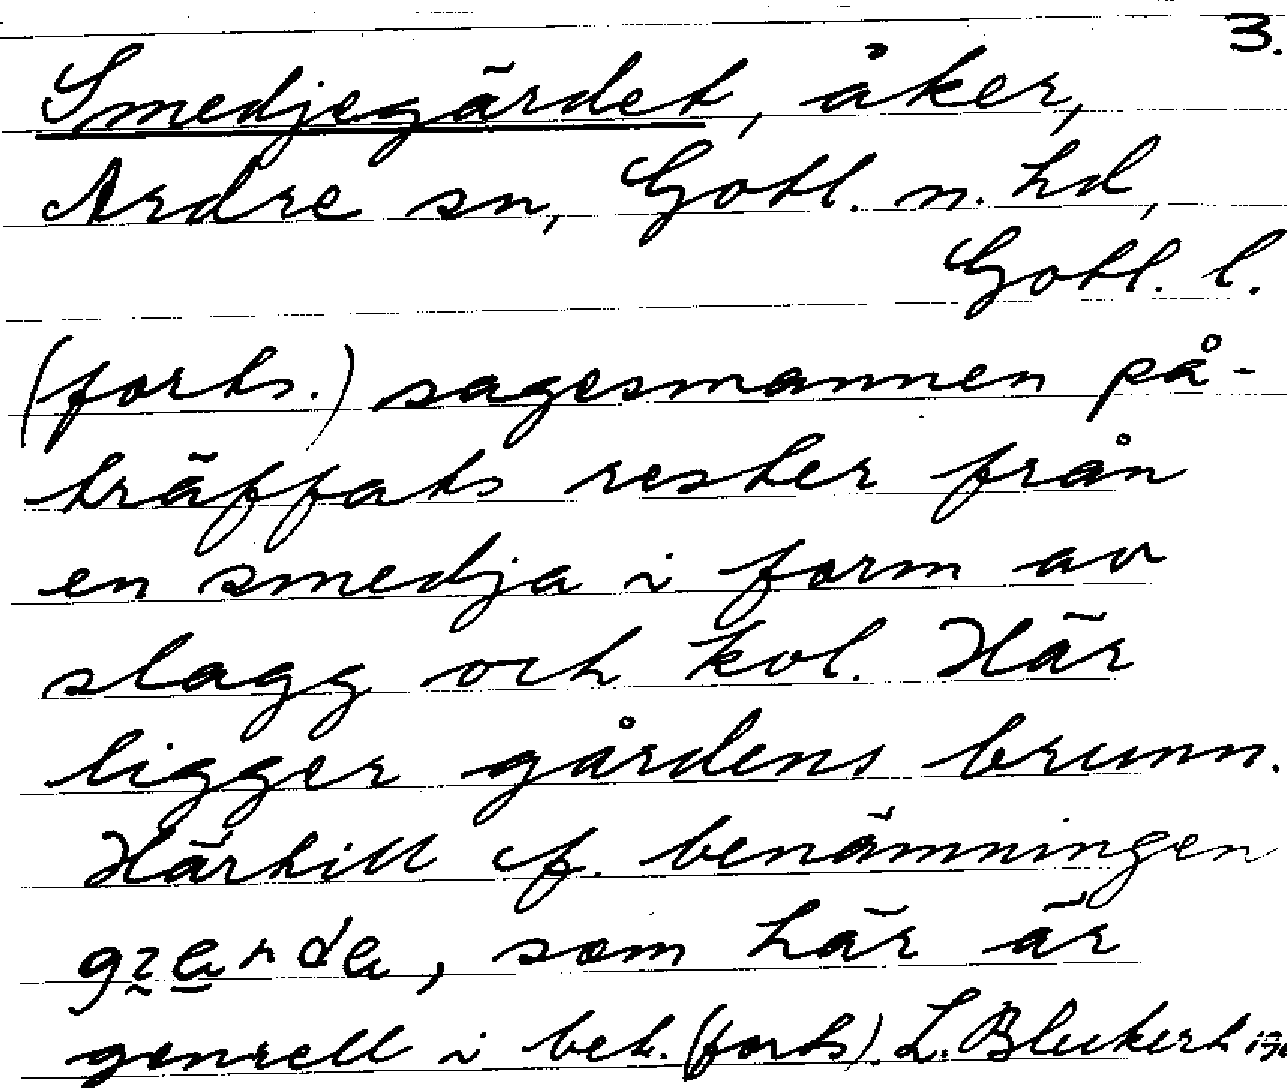 3.
Smedjegärdet, åker,
Ardre sn, Gotl. n. hd,
Gotl. l.
(forts.) sagesmannen på-
träffats rester från
en smedja i form av
slagg och kol. Här
ligger gårdens brunn.
Härtill cf. benämningen
som här är
genrell i bet. (forts). L. Bleckert